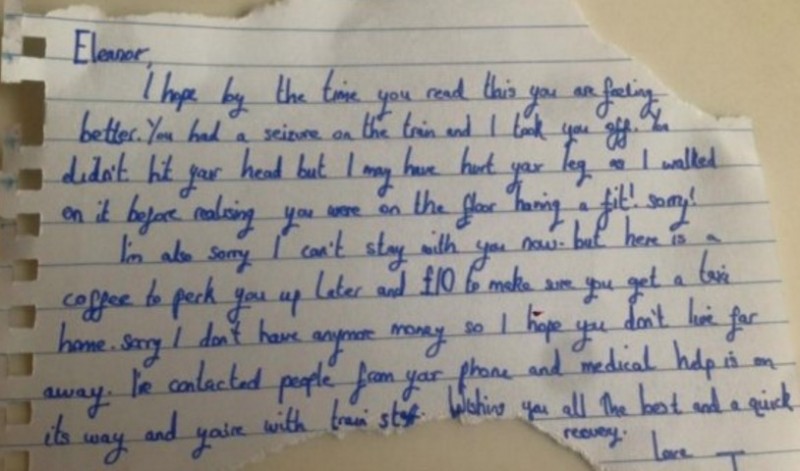 Eleanor,
I hope by the time you read this you are feeling
better. You had a seizure on the train and I took you off. You
didn't hit your head but I may have hurt your leg as I walked
on it before realising you were on the floor having a fit! sorry!
I'm also sorry I can't stay with you now - but here is a
coffee to perk you up later and £10 to make sure you get a taxi
home. sorry I don't have anymore money so I hope you don't live far
away. I've contacted people from your phone and medical help is on
its way and you're with train staff. Wishing you all the best and a quick
recovery.
Love